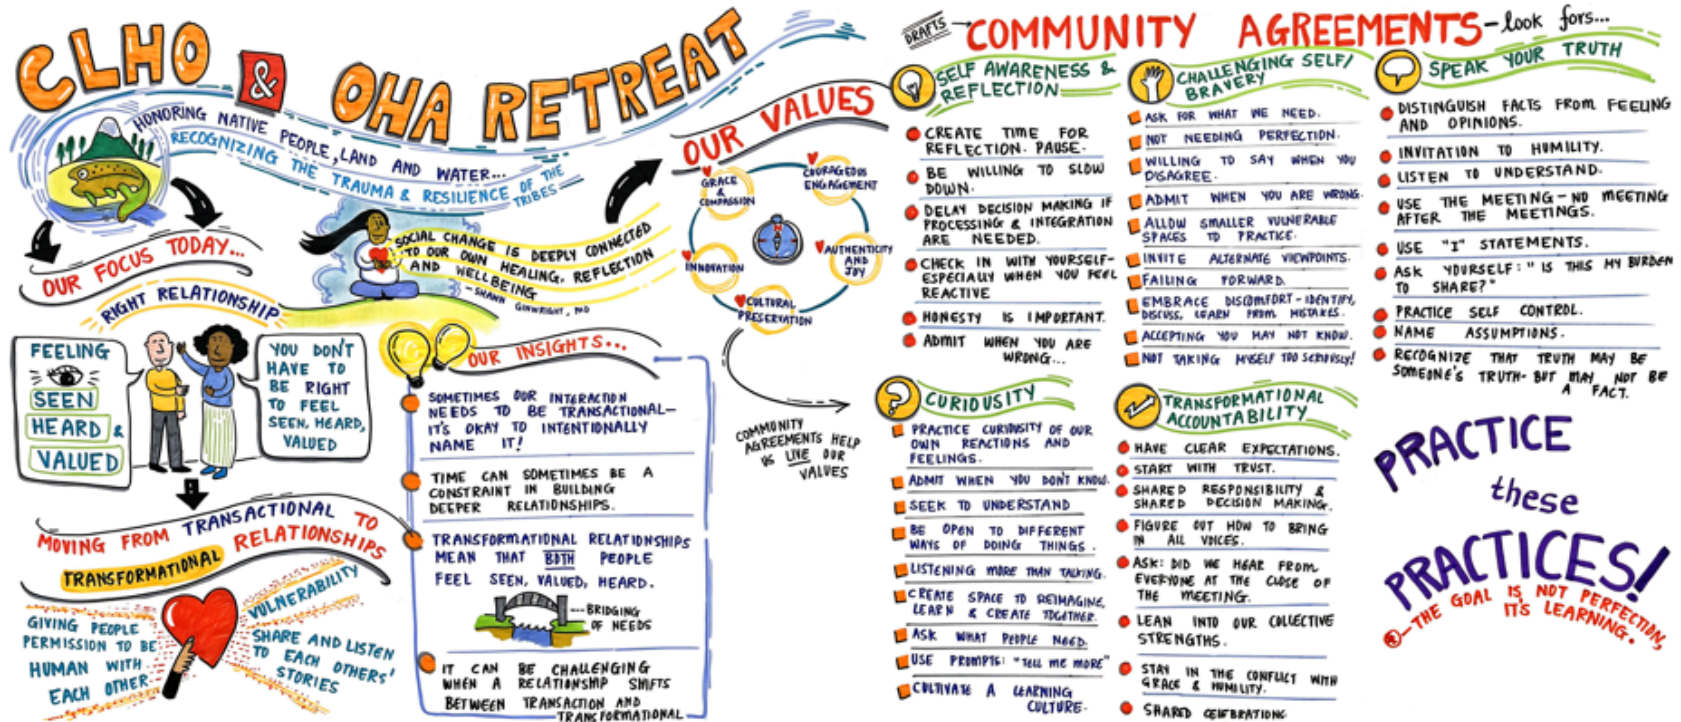 CLHO & OHA RETREAT
HONORING NATIVE PEOPLE, LAND AND WATER...
RECOGNIZING THE TRAUMA & RESILIENCE OF THE
TRIBES
OUR FOCUS TODAY...
RIGHT RELATIONSHIP
FEELING
SEEN
HEARD &
VALUED
YOU DON'T
HAVE TO
BE RIGHT
TO FEEL
SEEN, HEARD,
VALUED
MOVING FROM TRANSACTIONAL TO
TRANSFORMATIONAL RELATIONSHIPS
GIVING PEOPLE
PERMISSION TO BE
HUMAN WITH
EACH OTHER
VULNERABILITY
SHARE AND LISTEN
TO EACH OTHERS'
STORIES
SOCIAL CHANGE IS DEEPLY CONNECTED
TO OUR OWN HEALING, REFLECTION
AND WELLBEING
-SHAWN GINWRIGHT, PhD
OUR INSIGHTS...
SOMETIMES OUR INTERACTION
NEEDS TO BE TRANSACTIONAL-
IT'S OKAY TO INTENTIONALLY
NAME IT!
TIME CAN SOMETIMES BE A
CONSTRAINT IN BUILDING
DEEPER RELATIONSHIPS.
TRANSFORMATIONAL RELATIONSHIPS
MEAN THAT BOTH PEOPLE
FEEL SEEN, VALUED, HEARD.
BRIDGING
OF NEEDS
IT CAN BE CHALLENGING
WHEN A RELATIONSHIP SHIFTS
BETWEEN TRANSACTION AND
TRANSFORMATIONAL
OUR VALUES
GRACE
&
COMPASSION
COURAGEOUS
ENGAGEMENT
AUTHENTICITY
AND
JOY
CULTURAL
PRESERVATION
INNOVATION
COMMUNITY
AGREEMENTS HELP
US LIVE OUR
VALUES
DRAFTS → COMMUNITY AGREEMENTS - look fors...
SELF AWARENESS &
REFLECTION
CREATE TIME FOR
REFLECTION. PAUSE.
BE WILLING TO SLOW
DOWN.
DELAY DECISION MAKING IF
PROCESSING & INTEGRATION
ARE NEEDED.
CHECK IN WITH YOURSELF-
ESPECIALLY WHEN YOU FEEL
REACTIVE
HONESTY IS IMPORTANT.
ADMIT WHEN YOU ARE
WRONG...
CURIOUSITY
PRACTICE CURIOUSITY OF OUR
OWN REACTIONS AND
FEELINGS.
ADMIT WHEN YOU DON'T KNOW.
SEEK TO UNDERSTAND
BE OPEN TO DIFFERENT
WAYS OF DOING THINGS.
LISTENING MORE THAN TALKING.
CREATE SPACE TO REIMAGINE,
LEARN & CREATE TOGETHER.
ASK WHAT PEOPLE NEED.
USE PROMPTS: "TELL ME MORE"
CULTIVATE A LEARNING
CULTURE.
CHALLENGING SELF/
BRAVERY
ASK FOR WHAT WE NEED.
NOT NEEDING PERFECTION.
WILLING TO SAY WHEN YOU
DISAGREE.
ADMIT WHEN YOU ARE WRONG.
ALLOW SMALLER VULNERABLE
SPACES TO PRACTICE.
INVITE ALTERNATE VIEWPOINTS.
FAILING FORWARD.
EMBRACE DISCOMFORT - IDENTIFY,
DISCUSS, LEARN FROM MISTAKES.
ACCEPTING YOU MAY NOT KNOW.
NOT TAKING MYSELF TOO SERIOUSLY!
TRANSFORMATIONAL
ACCOUNTABILITY
HAVE CLEAR EXPECTATIONS.
START WITH TRUST.
SHARED RESPONSIBILITY &
SHARED DECISION MAKING.
FIGURE OUT HOW TO BRING
IN ALL VOICES.
ASK: DID WE HEAR FROM
EVERYONE AT THE CLOSE OF
THE MEETING.
LEAN INTO OUR COLLECTIVE
STRENGTHS.
STAY IN THE CONFLICT WITH
GRACE & HUMILITY.
SHARED CELEBRATIONS
SPEAK YOUR TRUTH
DISTINGUISH FACTS FROM FEELING
AND OPINIONS.
INVITATION TO HUMILITY.
LISTEN TO UNDERSTAND.
USE THE MEETING - NO MEETING
AFTER THE MEETINGS.
USE "I" STATEMENTS.
ASK YOURSELF: "IS THIS MY BURDEN
TO SHARE?"
PRACTICE SELF CONTROL.
NAME ASSUMPTIONS.
RECOGNIZE THAT TRUTH MAY BE
SOMEONE'S TRUTH- BUT MAY NOT BE
A FACT.
PRACTICE
these
PRACTICES!
-THE GOAL IS NOT PERFECTION,
IT'S LEARNING.